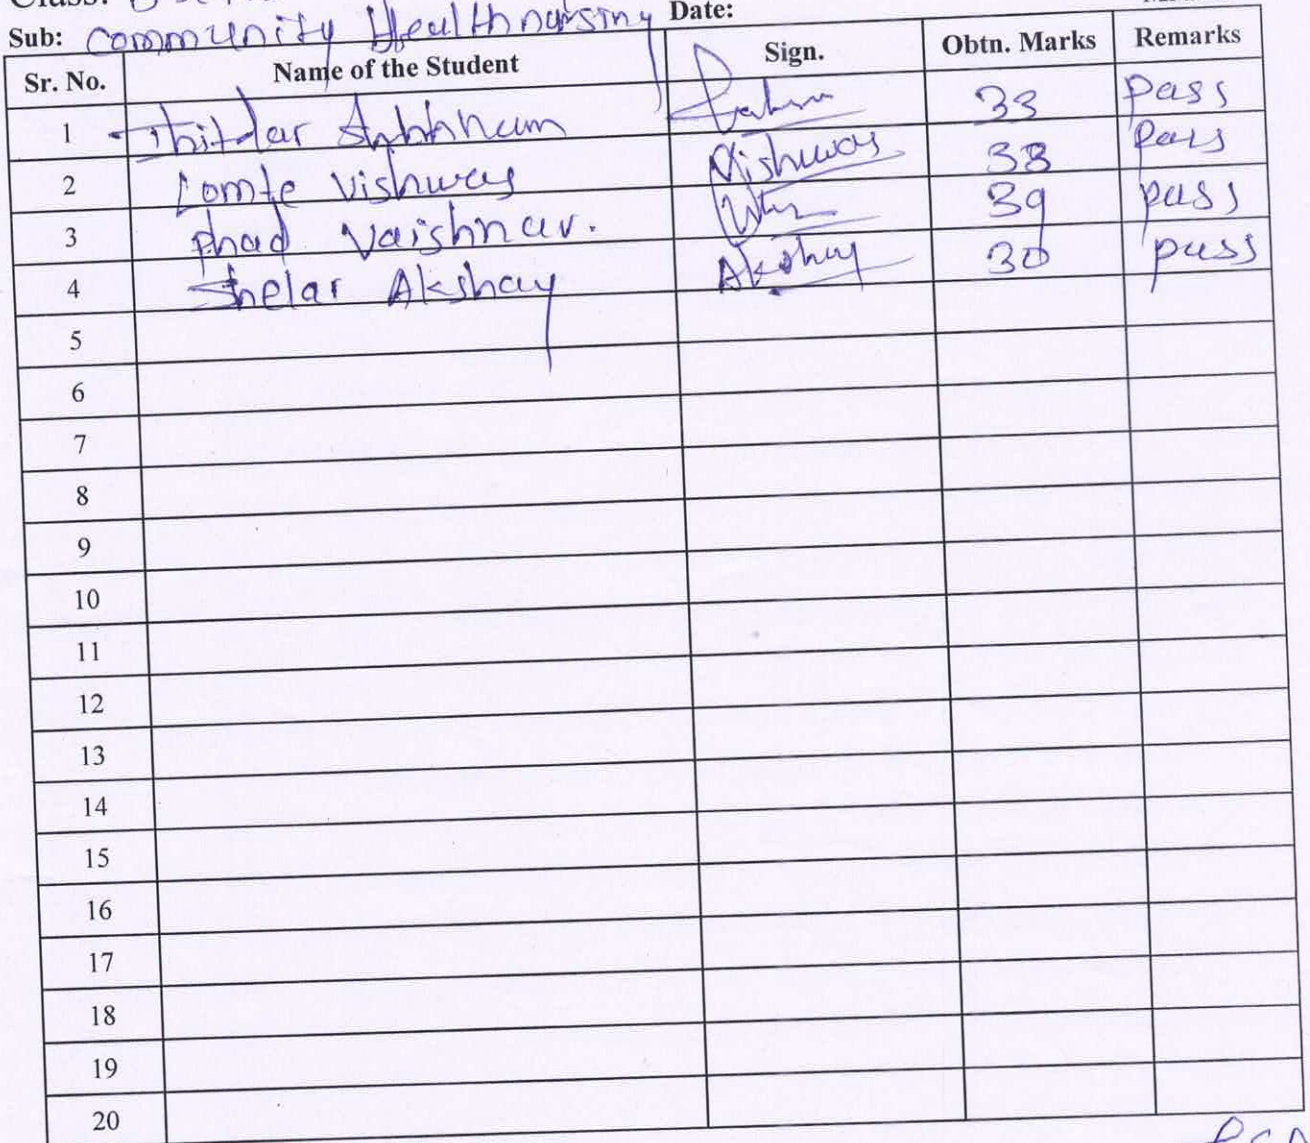 Class:
Sub: Community Health nursing Date:
Sr. No. Name of the Student Sign. Obtn. Marks Remarks
1 33 pass
2 Lomte Vishwas Vishwas 38 pass
3 phad Vaishnav. 39 pass
4 Shelar Akshay Akshay 30 pass
5
6
7
8
9
10
11
12
13
14
15
16
17
18
19
20